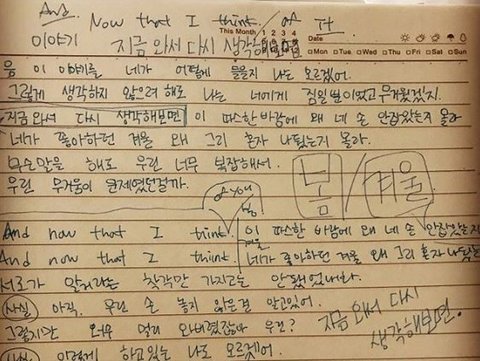 And. Now that I think of it
This Month 1 2 3 4
Date
이야기 지금 와서 다시 생각해
□Mon □Tue □Wed □Thu □Fri □Sat □Sun
음 이 이야기를 네가 어떻게 들을지 나는 모르겠어.
그렇게 생각하지 않으려 해도 나는 너에게 짐일뿐이었고 무거웠겠지.
지금 와서 다시 생각해보면 이 따스한 바람에 왜 네 손 안잡았는지 몰라
네가 좋아하던 겨울 왜 그리 혼자 나뒀는지 몰라.
무슨말을 해도 우린 너무 복잡해서.
우린 무거움이 문제였던걸까.
봄 / 겨울
of you
And now that I think. 이 따스한 바람에 왜 네 손 안잡았는지
And now that I think. 네가 좋아하던 겨울 왜 그리 혼자 나뒀는
서로가 앞서라는 착각만 가지고는 안됐었나봐.
사실 아직. 우린 손 놓지 않은걸 알고있어.
그렇지만 너무 멀리 와버렸잖아 우린?
지금 와서 다시 생각해보면.
사실 이렇게 하고있는 나도 모르겠어.